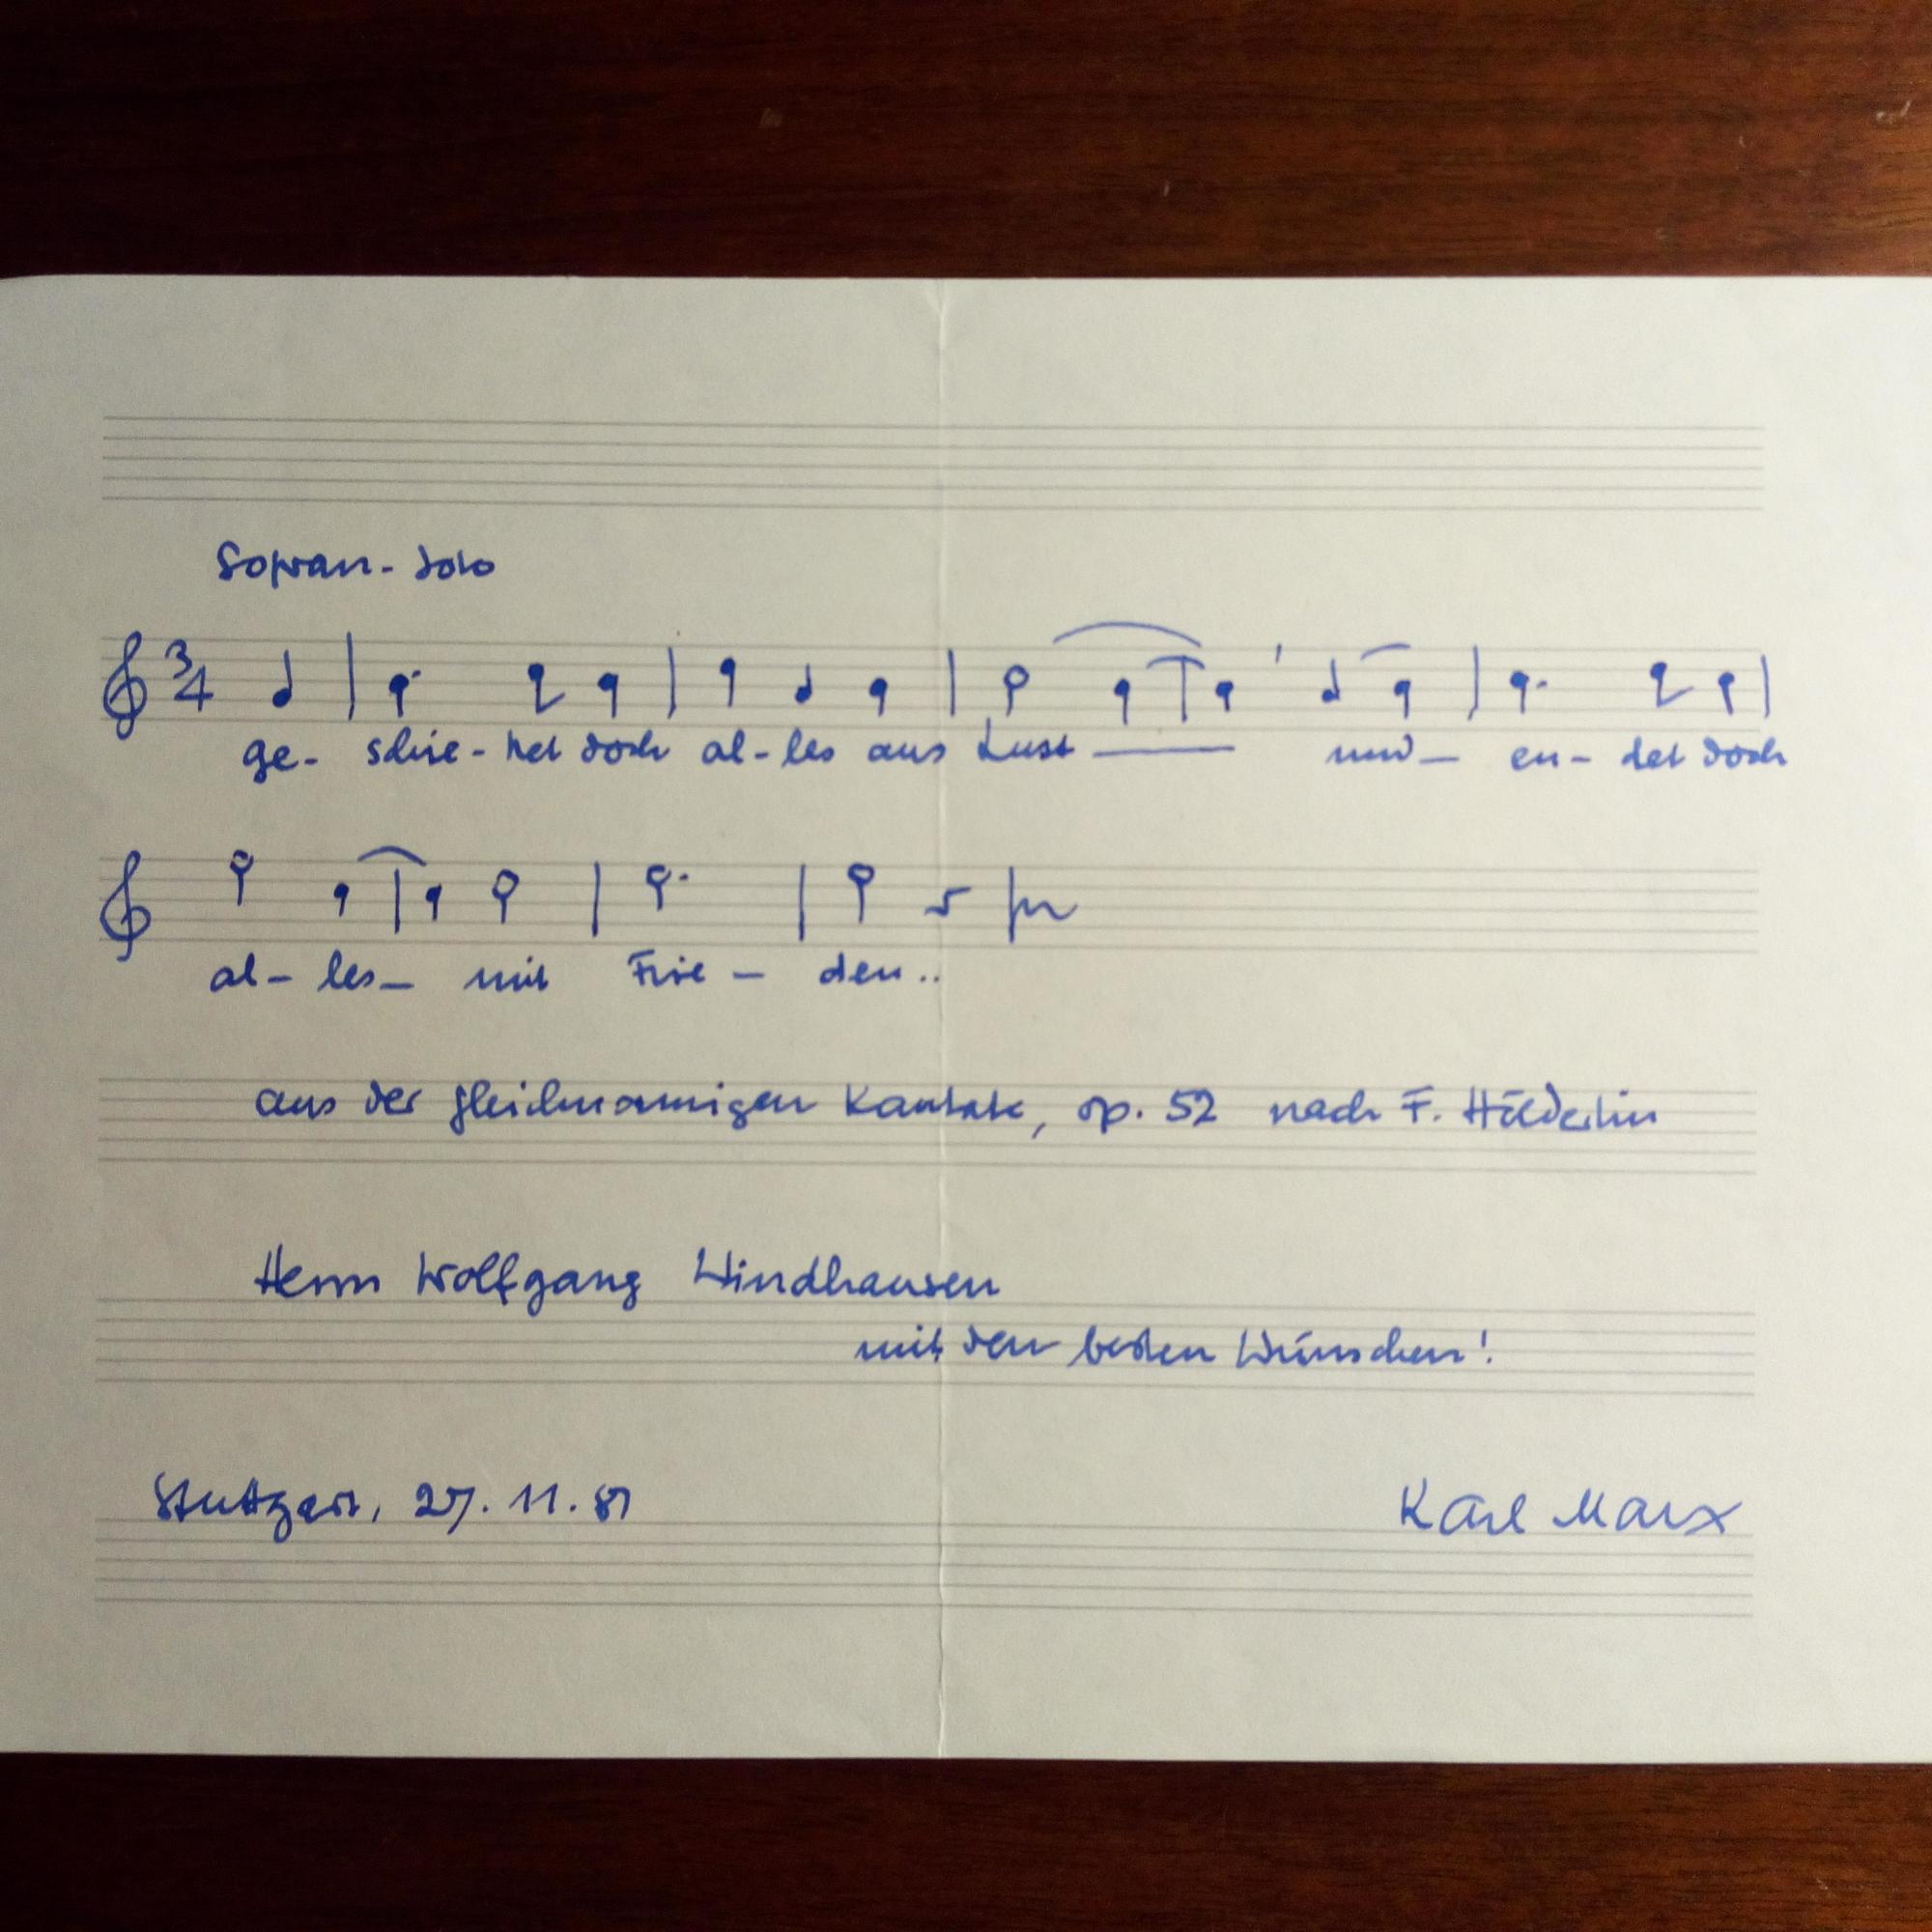 Sopran-Solo
3/4
ge- schie-het doch al-les aus Lust — und— en-det doch
al- les— mit Frie - den..
aus der gleichnamigen Kantate, op. 52 nach F. Hölderlin
Herrn Wolfgang Windhausen
mit den besten Wünschen!
Stuttgart, 27.11.81
Karl Marx